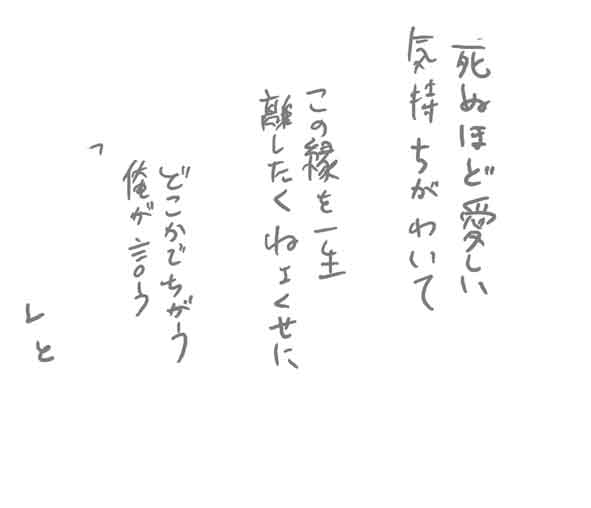 死ぬほど愛しい
気持ちがわいて
この縁を一生
離したくねェくせに
どこかでちがう
俺が言う
「
」と